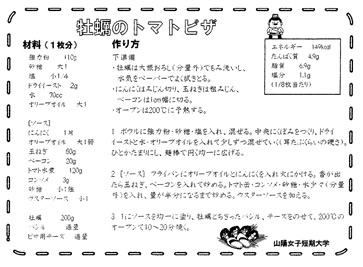 牡蠣のトマトピザ
材料（1枚分）
強力粉 110g
砂糖 大1
塩 小1/4
ドライイースト 2g
水 70cc
オリーブオイル 大1
【ソース】
にんにく 1片
オリーブオイル 大1弱
玉ねぎ 50g
ベーコン 20g
トマト水煮 120g
コンソメ 3g
砂糖 小1強
ウスターソース 小1
牡蠣 200g
バジル 適量
ピザ用チーズ 適量
作り方
下準備
・牡蠣は大根おろし（分量外）でもみ洗いし、
水気をペーパーでよく拭きとる。
・にんにくはみじん切り、玉ねぎは粗みじん、
ベーコンは1cm幅に切る。
・オーブンは200℃に予熱する。
エネルギー 149kcal
たんぱく質 4.9g
脂質 6.9g
塩分 1.1g
（1/8枚当たり）
1 ボウルに強力粉・砂糖・塩を入れ、混ぜる。中央にくぼみをつくり、ドライ
イーストと水・オリーブオイルを入れて少しずつ混ぜていく（耳たぶくらいの硬さ）。
ひとかたまりにし、麺棒で円く均一に広げる。
2 【ソース】 フライパンにオリーブオイルとにんにくを入れ火にかける。香が出
たら玉ねぎ、ベーコンを入れて炒める。トマト缶・コンソメ・砂糖・水少々（分量
外）を入れ、量が半分になるまで炒める。ウスターソースを加える。
3 1にソースを均一に塗り、牡蠣とちぎったバジル、チーズをのせて、200℃の
オーブンで10～20分焼く。
山陽女子短期大学